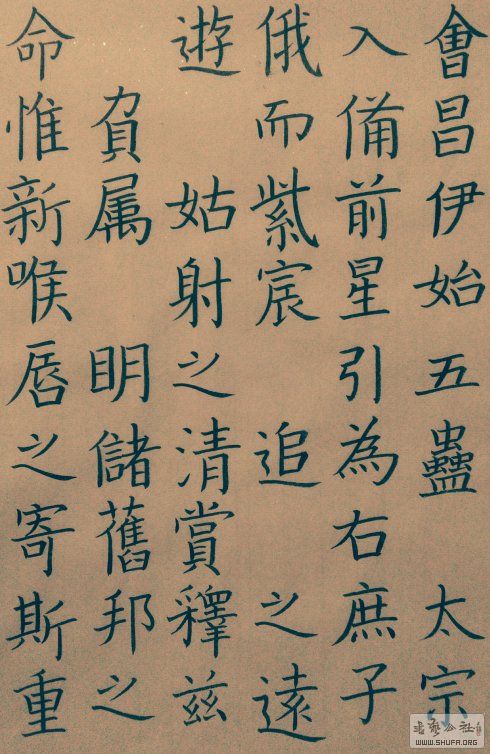 會昌伊始五蠱 太宗
入俻前星引為右庶子
俄而紫宸 追 之遠
遊 姑射之清賞釋茲
負属 明儲舊邦之
命惟新喉唇之寄斯重
WWW.SHUFA.ORG